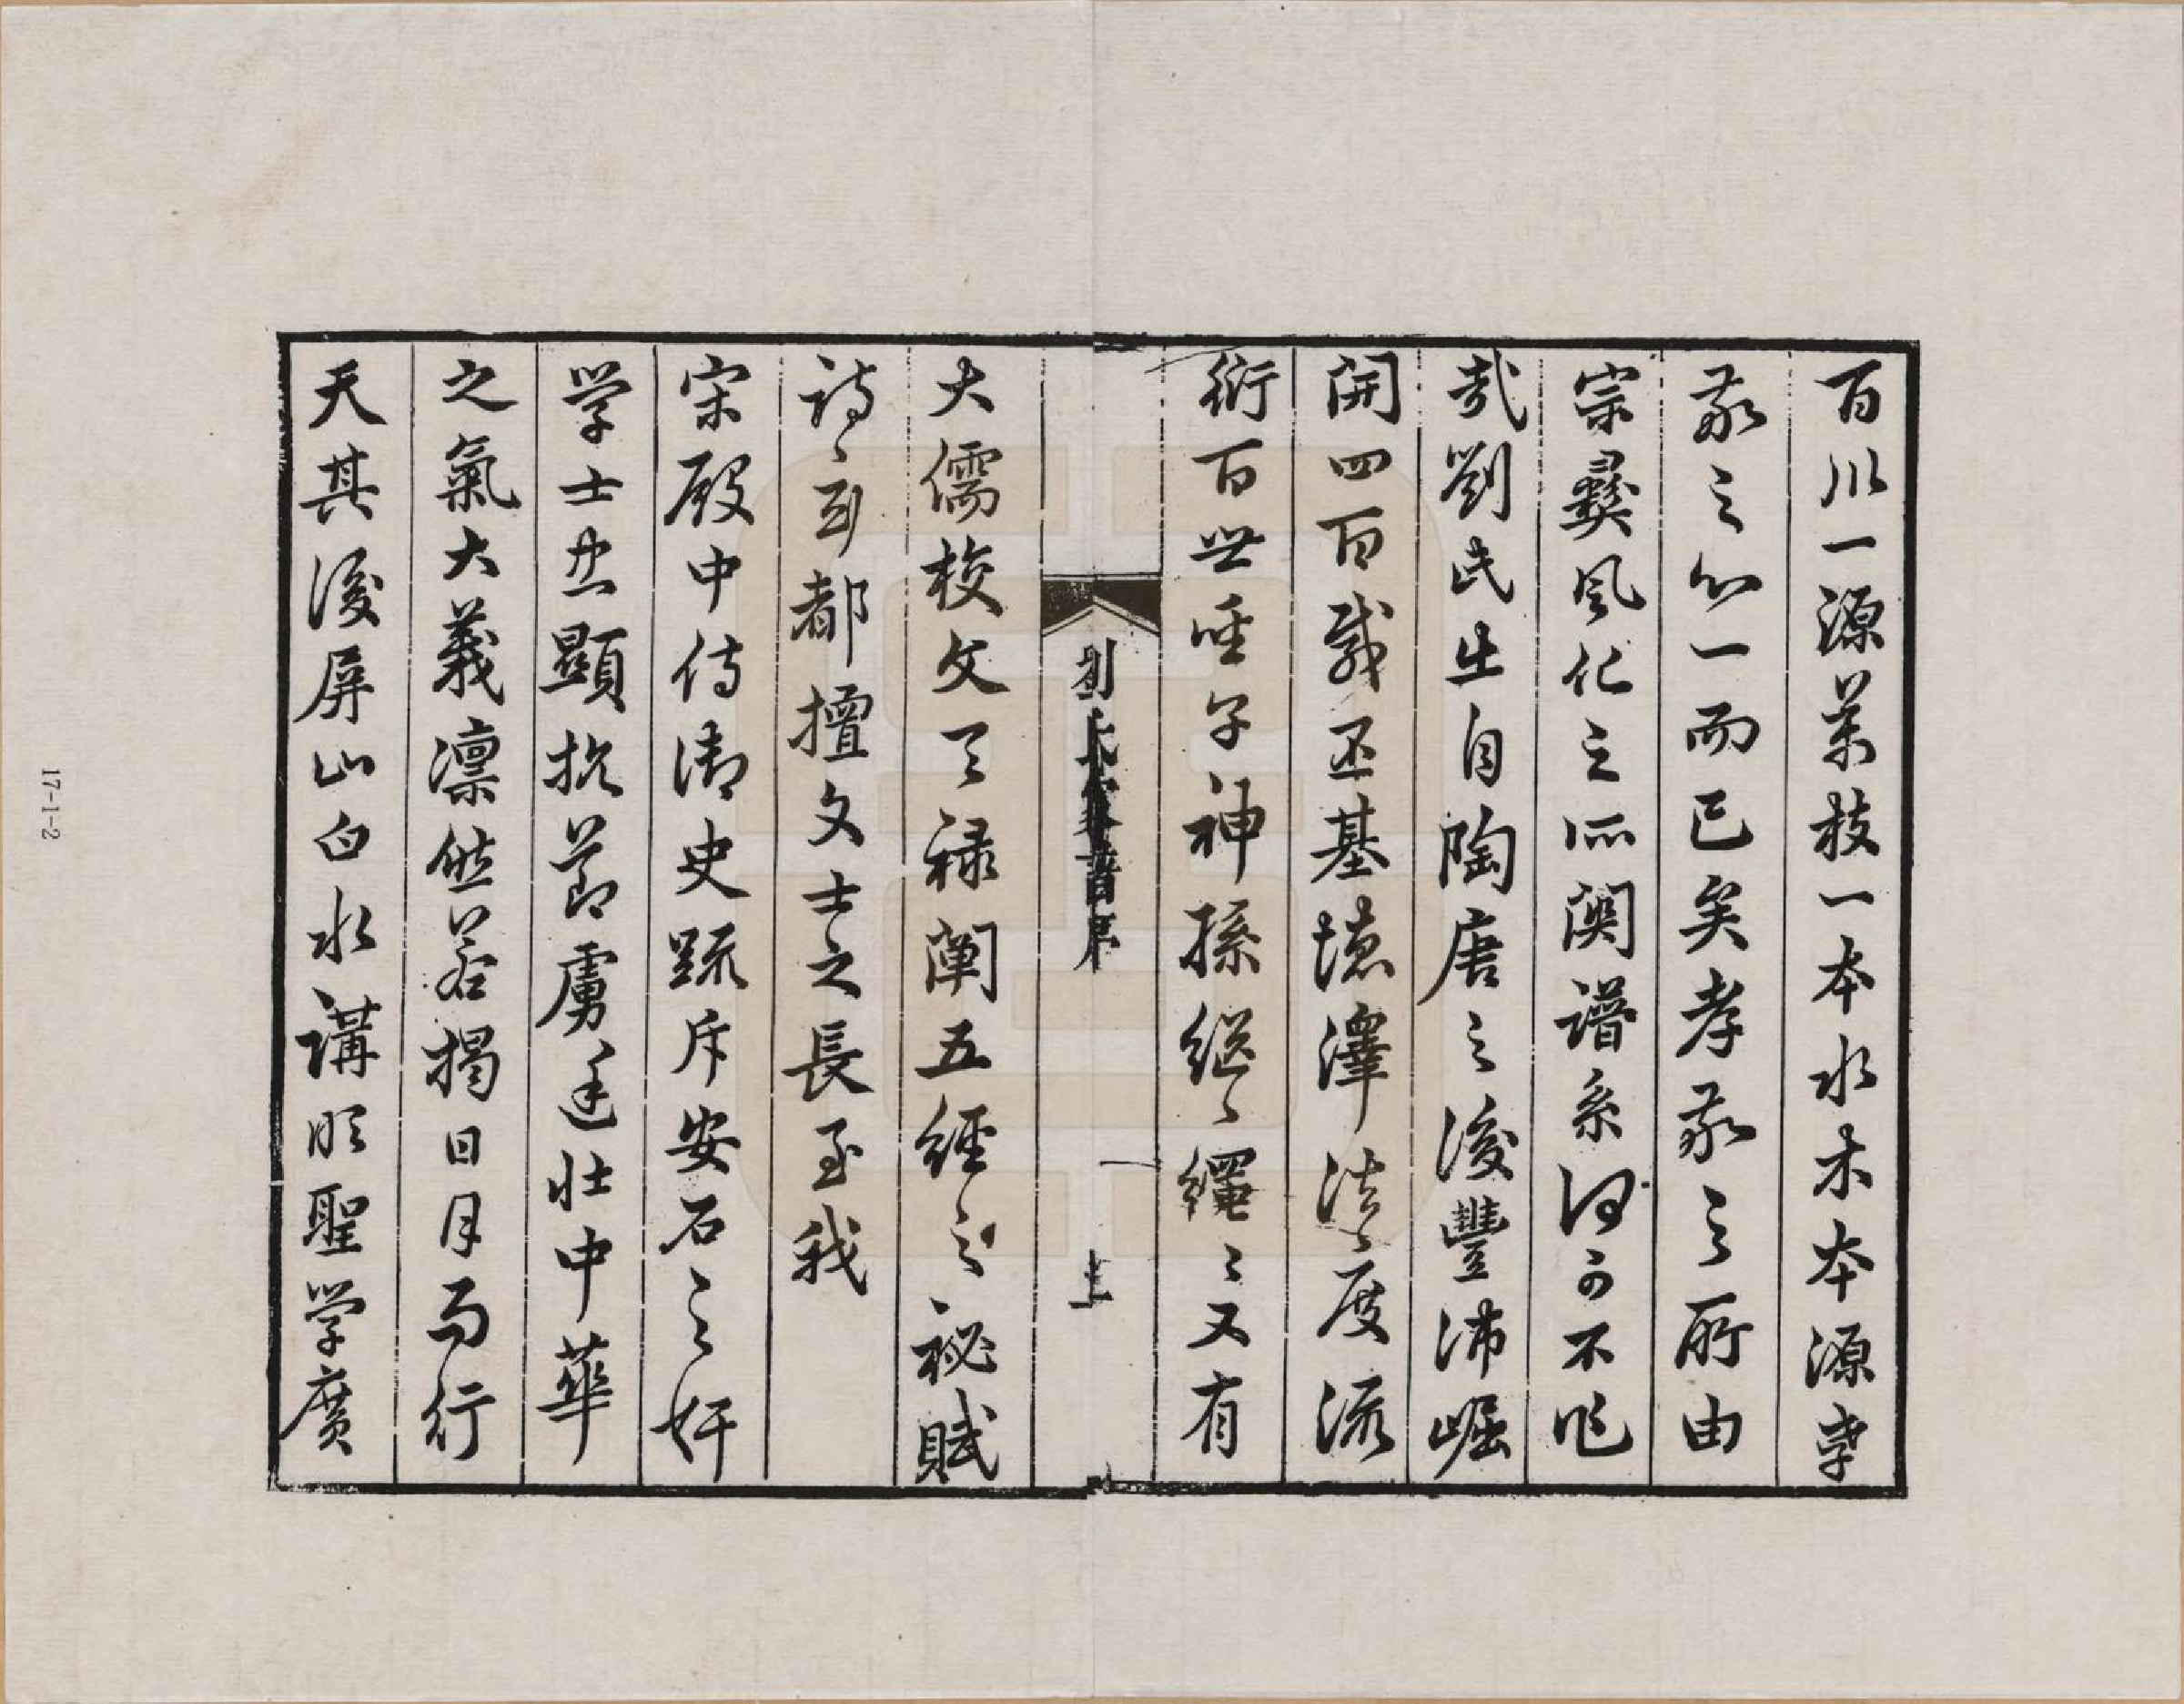 百川一源萬枝一本水木本源孝
敬之心一而已矣孝敬之所由
宗彝風化之所関譜系何可不作
哉劉氏生自陶唐之後豐沛崛
開四百載丕基德澤法度流
衍百世聖子神孫繼〻繩〻又有
劉氏家譜序
上
大儒校文天禄闡五經之祕賦
詩京都擅文士之長至我
宋殿中侍御史䟽斥安石之奸
学士公顯抗節虜廷壯中華
之氣大義凛然若揭日月而行
天其後屏山白水講明聖学廣
17-1-2